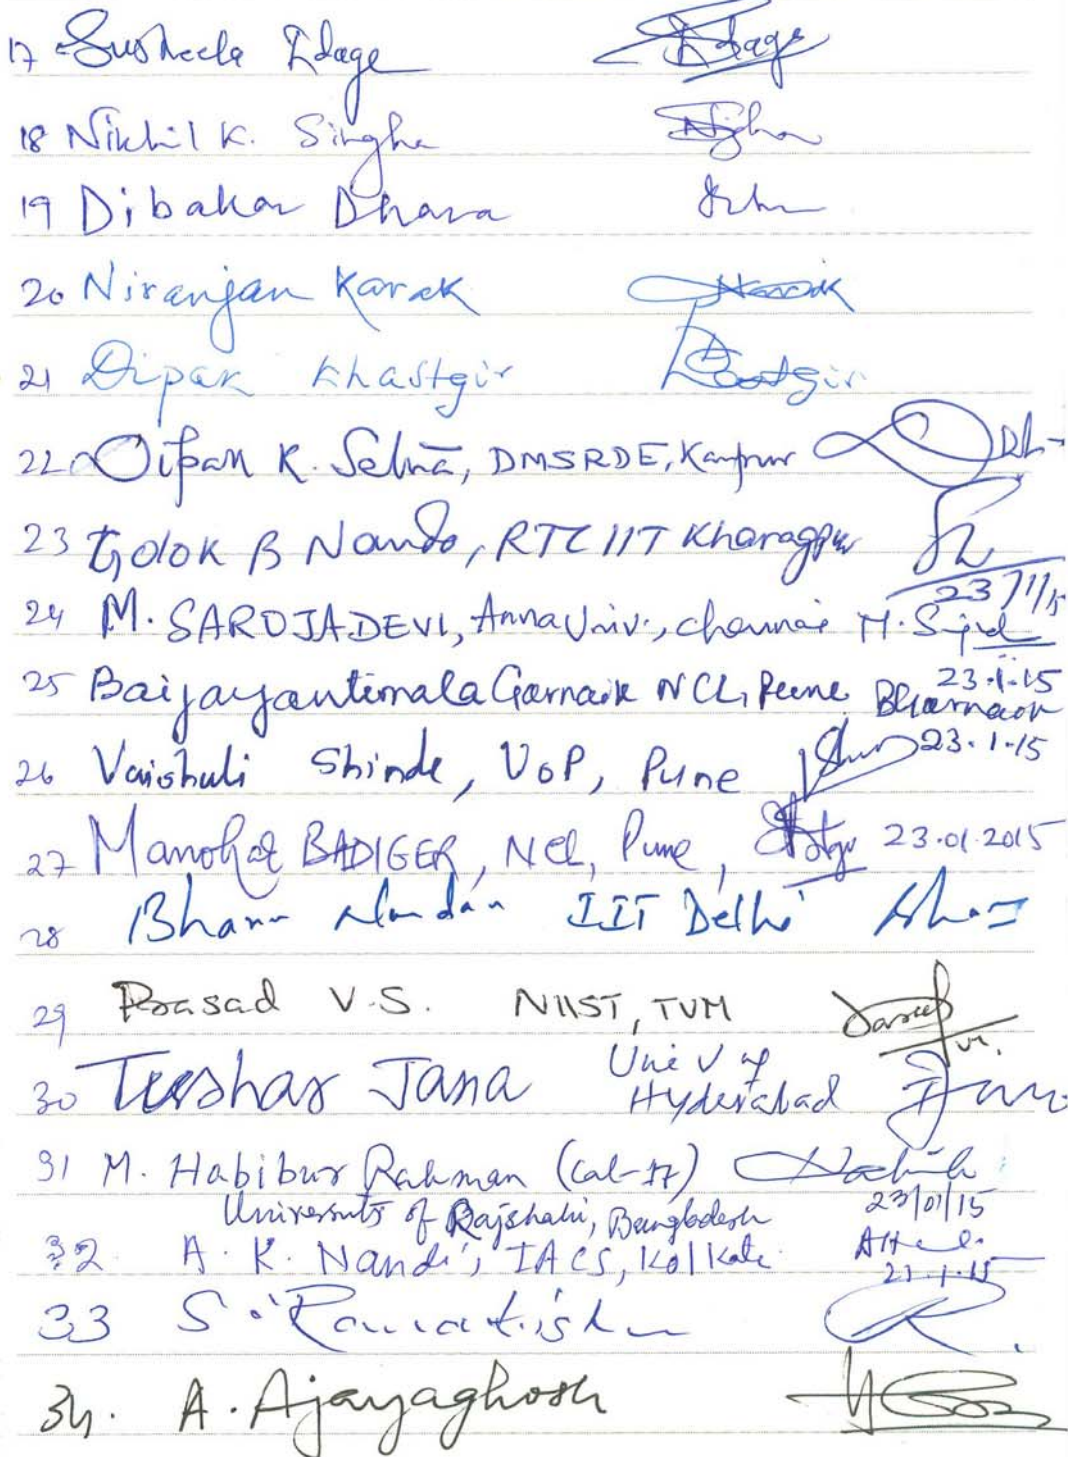 17 Susheela Idage Idage
18 Nikhil K. Singha
19 Dibakar Dhara
20 Niranjan Karak
21 Dipak Khastgir Khastgir
22 Dipan K. Setua, DMSRDE, Kanpur
23 Golok B Nando, RTC IIT Kharagpur
23/1/15
24 M. SAROJADEVI, Anna Univ., Chennai
23.1.15
25 Baijayantimala Garnaik NCL, Pune. BGarnaik
26 Vaishali Shinde, UoP, Pune 23.1.15
27 Manohar BADIGER, NCL, Pune, 23.01.2015
28 Bhanu Nandan IIT Delhi
29 Prasad V.S. NIIST, TVM
30 Tushar Jana Univ of
Hyderabad
31 M. Habibur Rahman (Cal-17)
University of Rajshahi, Bangladesh 23/01/15
32. A. K. Nandi, IACS, Kolkata
33 S. Ramakrishnan
34. A. Ajayaghosh